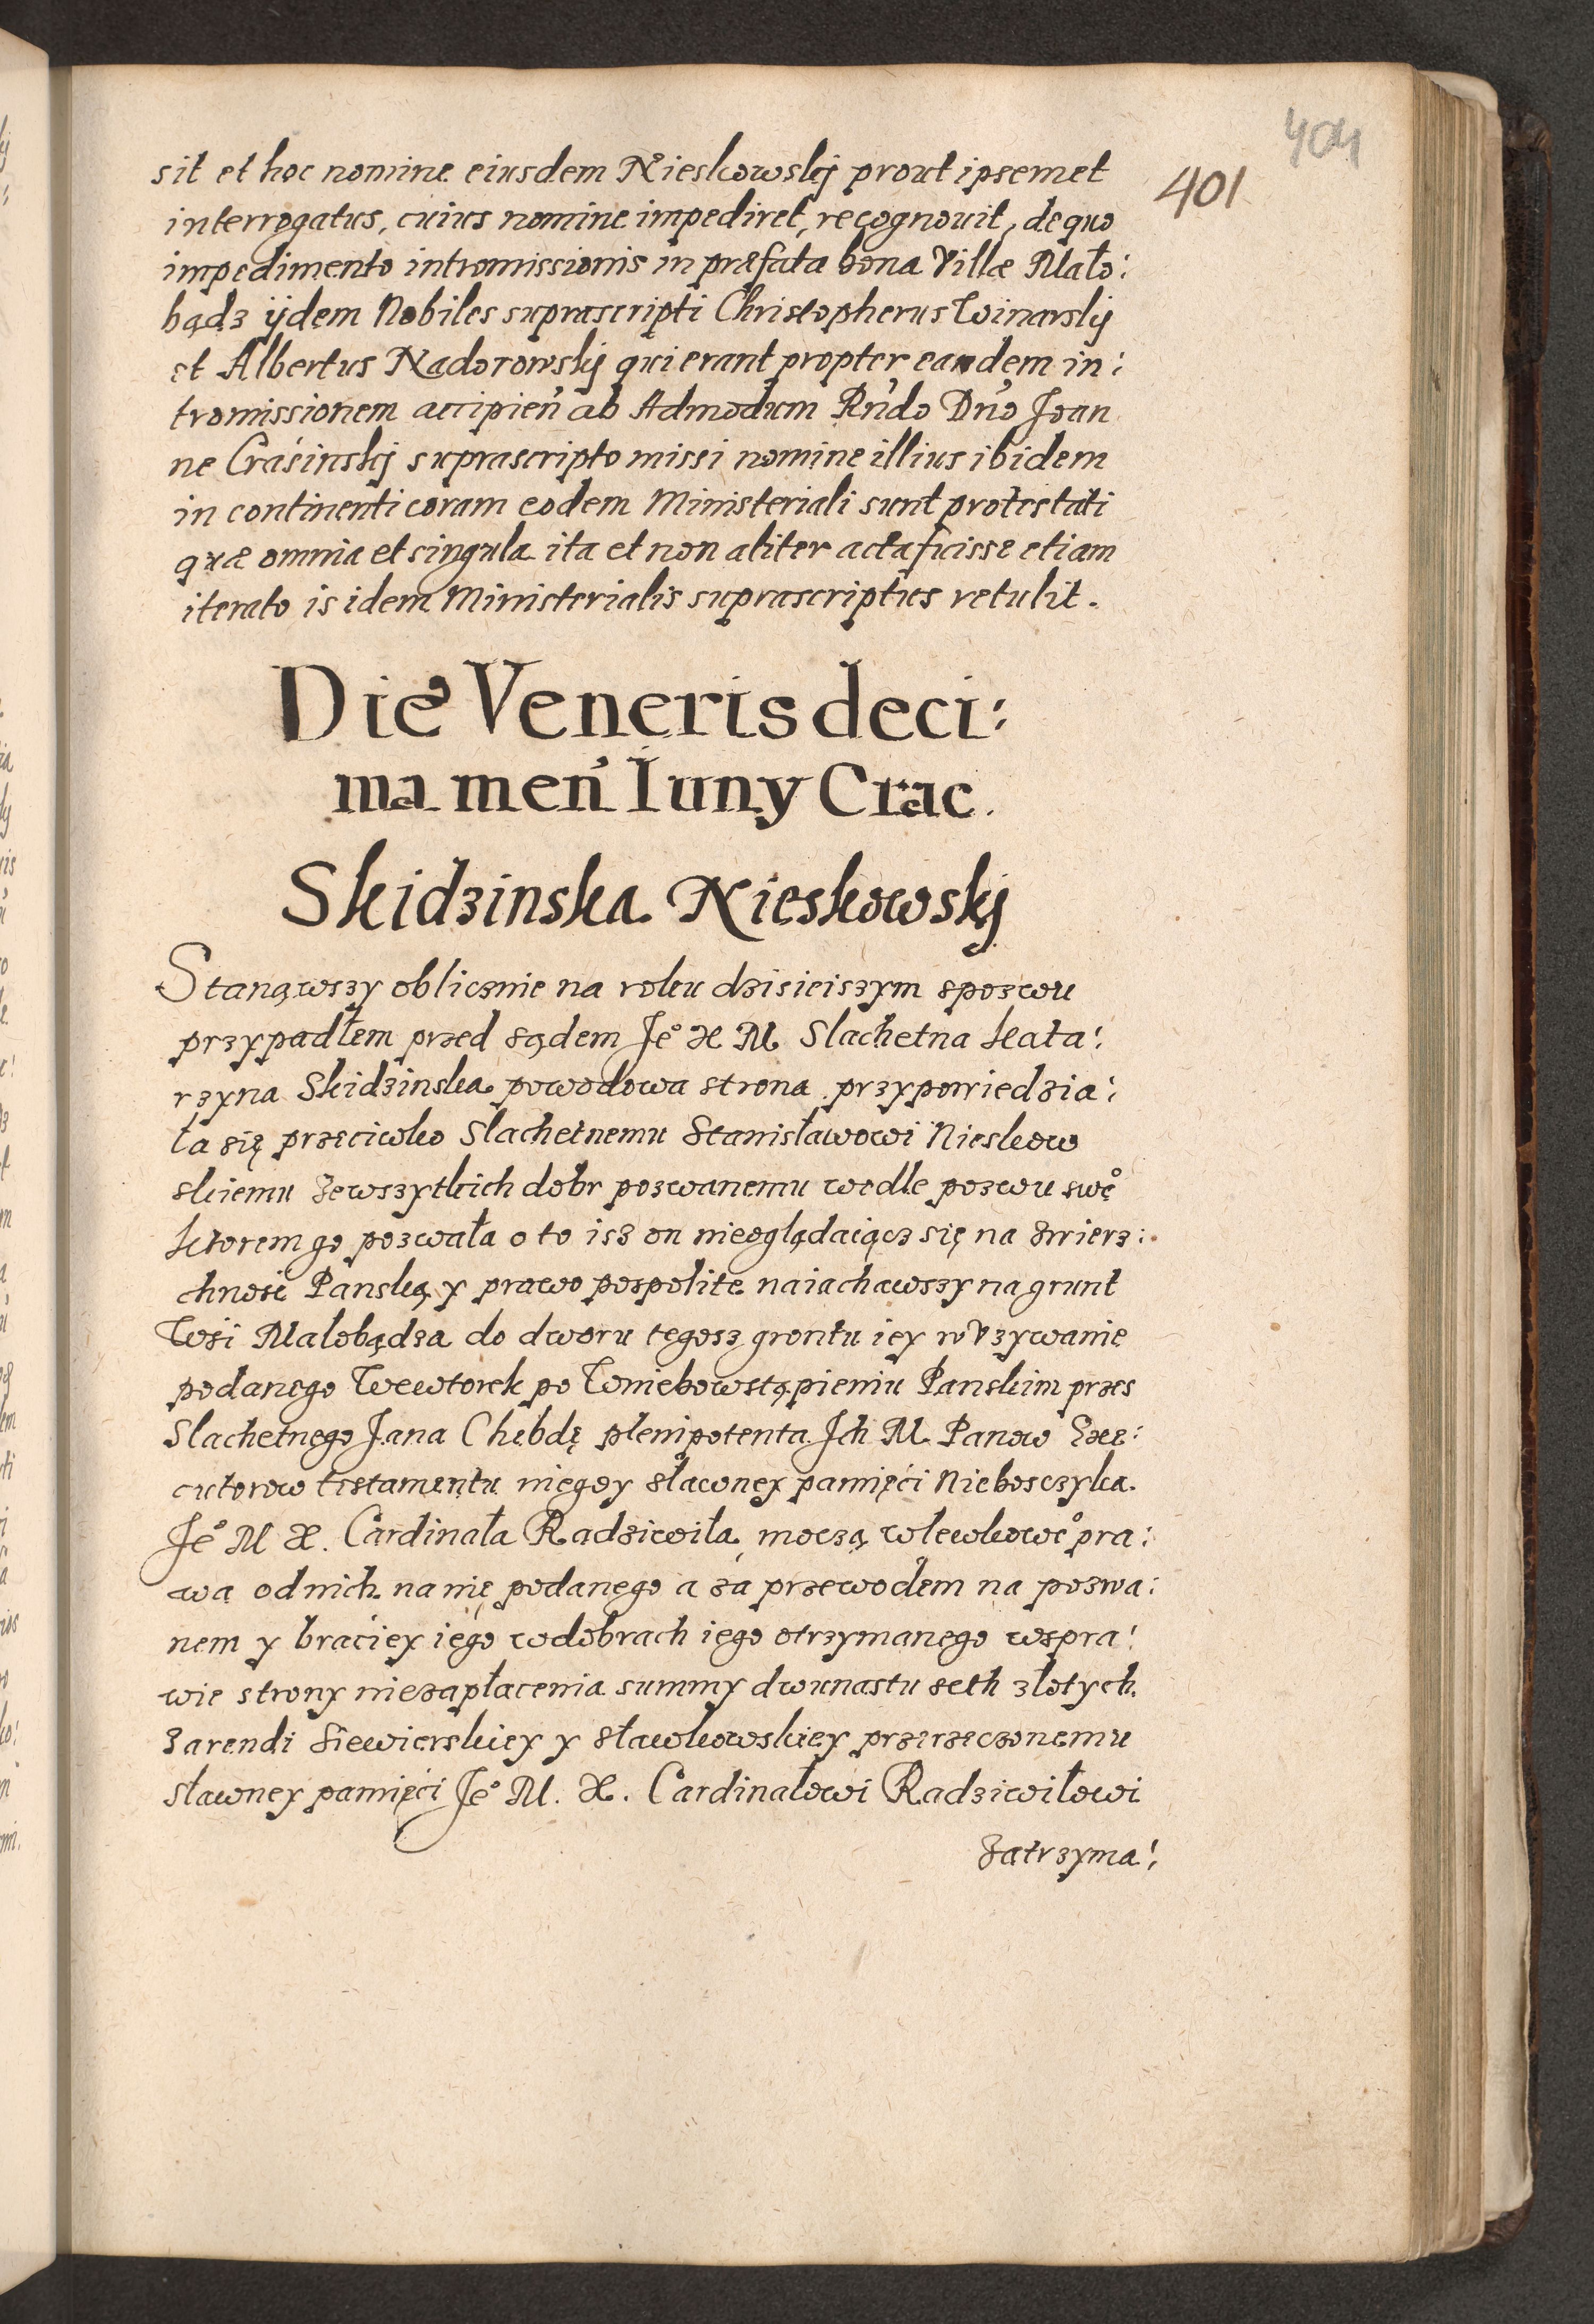 404
401
sit et hoc nomine eiusdem Nieskowskij prout ipsemet
interrogatus, cuius nomine impediret, recognouit, de quo
impedimento intromissionis in præfata bona Villæ Mało:
bądz ijdem Nobiles suprascripti Christopherus Winarskij
et Albertus Nadorowskij qui erant propter eandem in:
tromissionem accipien̄ ab Admodum Rn̄do Dn̄o Joan
ne Craśinskij suprascripto missi nomine illius ibidem
in continenti coram eodem Ministeriali sunt protestati
quæ omnia et singula ita et non aliter acta fuisse etiam
iterato is idem Ministerialis suprascriptus retulit.
Die Veneris deci:
ma men̄ Iuny Crac.
Skidzinska Nieskowskj
Stanąwszy oblicznie na roku dzisieiszym spozwu
przypadłem przed sądem Je° X M Slachetna Kata:
rzyna Skidzinska powodowa strona przypowiedzia:
ła się przeciwko Slachetnemu Stanisławowi Nieskow
skiemu Zewszytkich dobr pozwanemu wedle pozwu swe°
ktorem go pozwała o to isz on nieoglądaiącz się na zwierz:
chność Panską y prawo pospolite naiachawszy na grunt
Wśi Malobądza do dworu tegosz grontu iey w Vzywanie
podanego Wewtorek po Wniebowstąpieniu Panskim przes
Slachetnego Jana Chebdę plenipotenta Ich M Panow Exe:
cutorow testamentu niegdy sławney pamięći Nieboszczyka
Je° M X. Cardinała Radziwiła, moczą wlewkowe° pra:
wa od nich na nię podanego a za przewodem na pozwa:
nem y braćiey iego wdobrach iego otrzymanego wspra:
wie strony niezapłacenia summy dwunastu seth złotych
Zarendi Siewierskiey y Sławkowskiey przerzeczonemu
sławney pamięći Je° M. X. Cardinałowi Radziwiłowi
Zatrzyma: